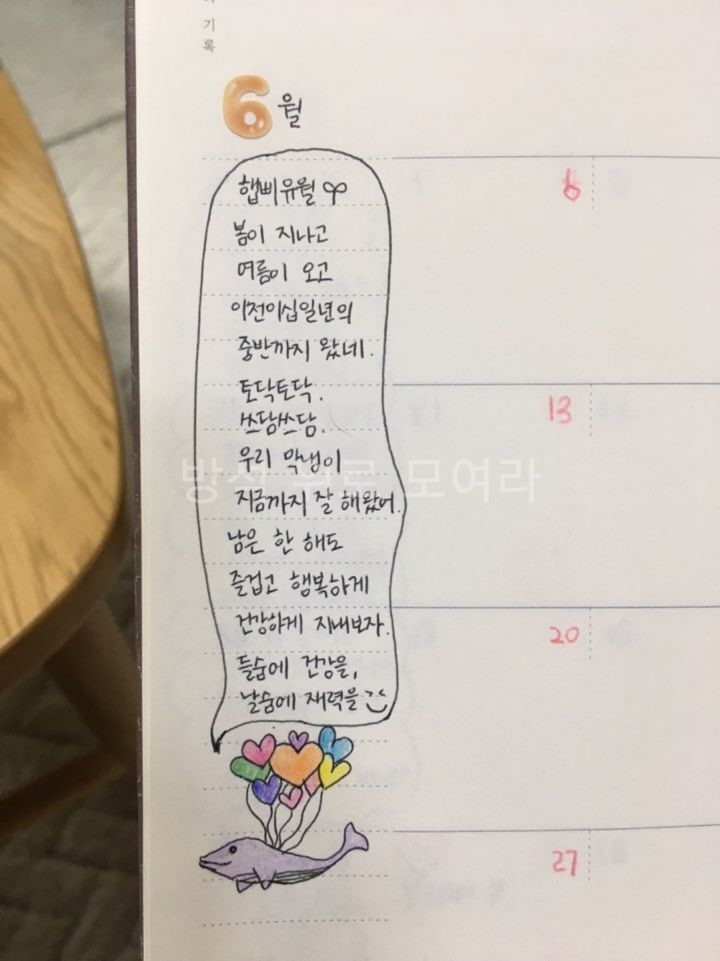 기록
6월
햅삐유월
봄이 지나고
여름이 오고
이천이십일년의
중반까지 왔네.
토닥토닥.
쓰담쓰담.
우리 막냉이
지금까지 잘 해왔어.
남은 한 해도
즐겁고 행복하게
건강하게 지내보자.
들숨에 건강을,
날숨에 재력을
6
13
20
27
방석 위로 모여라